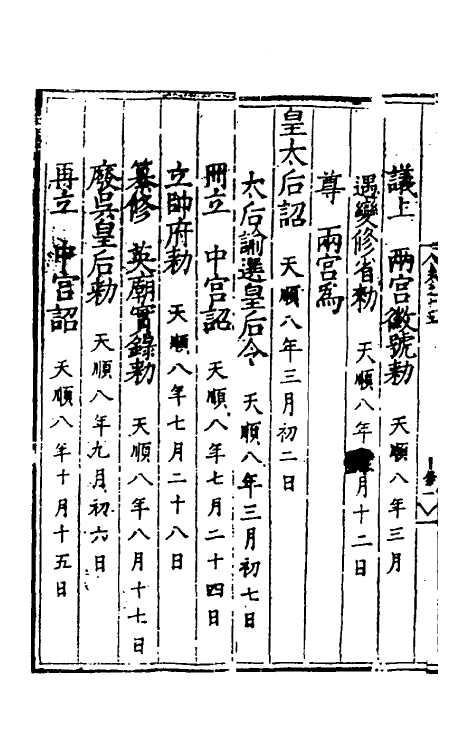 議上　兩宮徽號勅　天順八年三月
遇變修省勅　天順八年月十二日
尊　兩宮爲
皇太后詔　天順八年三月初二日
太后諭選皇后令　天順八年三月初七日
冊立　中宮詔　天順八年七月二十四日
立帥府勅　天順八年七月二十八日
纂修　英廟實錄勅　天順八年八月十七日
廢吳皇后勅　天順八年九月初六日
再立　中宮詔　天順八年十月十五日